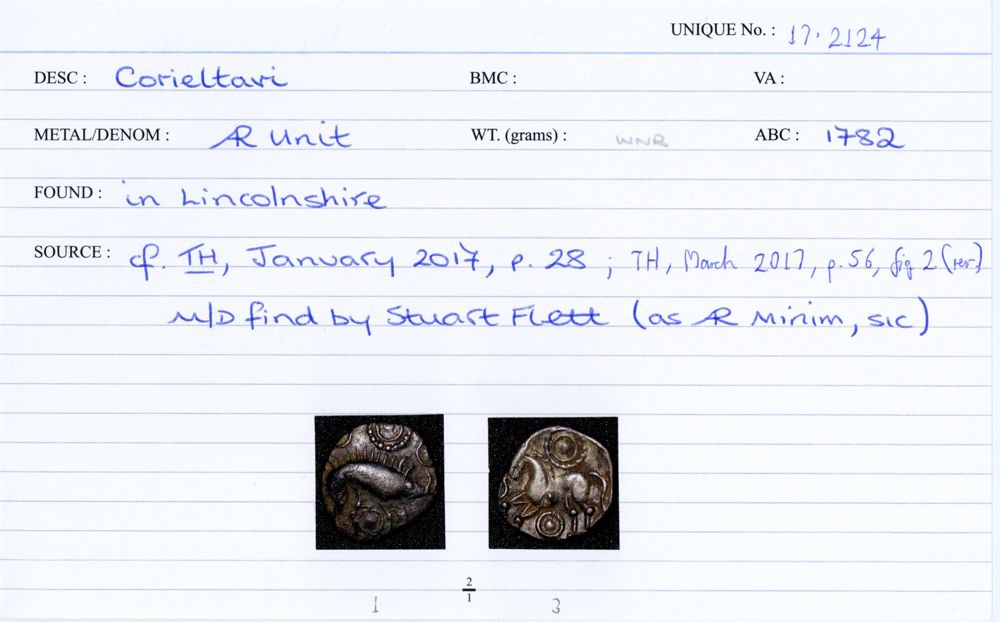 UNIQUE No. : 17.2124
DESC : Corieltavi BMC : VA :
METAL/DENOM : AR Unit WT. (grams) : WNR ABC : 1782
FOUND : in Lincolnshire
SOURCE : cf. TH, January 2017, p. 28 ; TH, March 2017, p. 56, fig 2 (rev.)
M/D find by Stuart Flett (as AR Minim, sic)
2
1
1 3